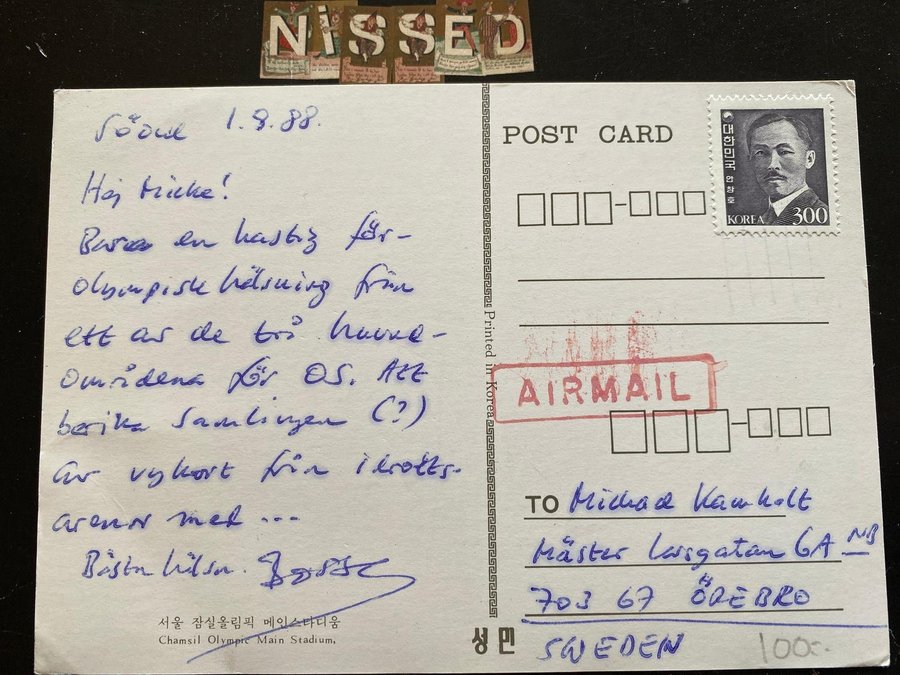 NiSSED
Söoul 1.9.88.
Hej Micke!
Bara en hastig för-
olympisk hälsning från
ett av de två huvud-
områdena för OS. Att
berika samlingen (?)
av vykort från idrotts-
arenor med ...
Bästa hälsn.
서울 잠실올림픽 메인스타디움
Chamsil Olympic Main Stadium.
Printed in Korea
성민
POST CARD
대한민국 안창호
KOREA 300
AIRMAIL
TO Michael
Mäster 6A NB
703 67 ÖREBRO
SWEDEN 100:-